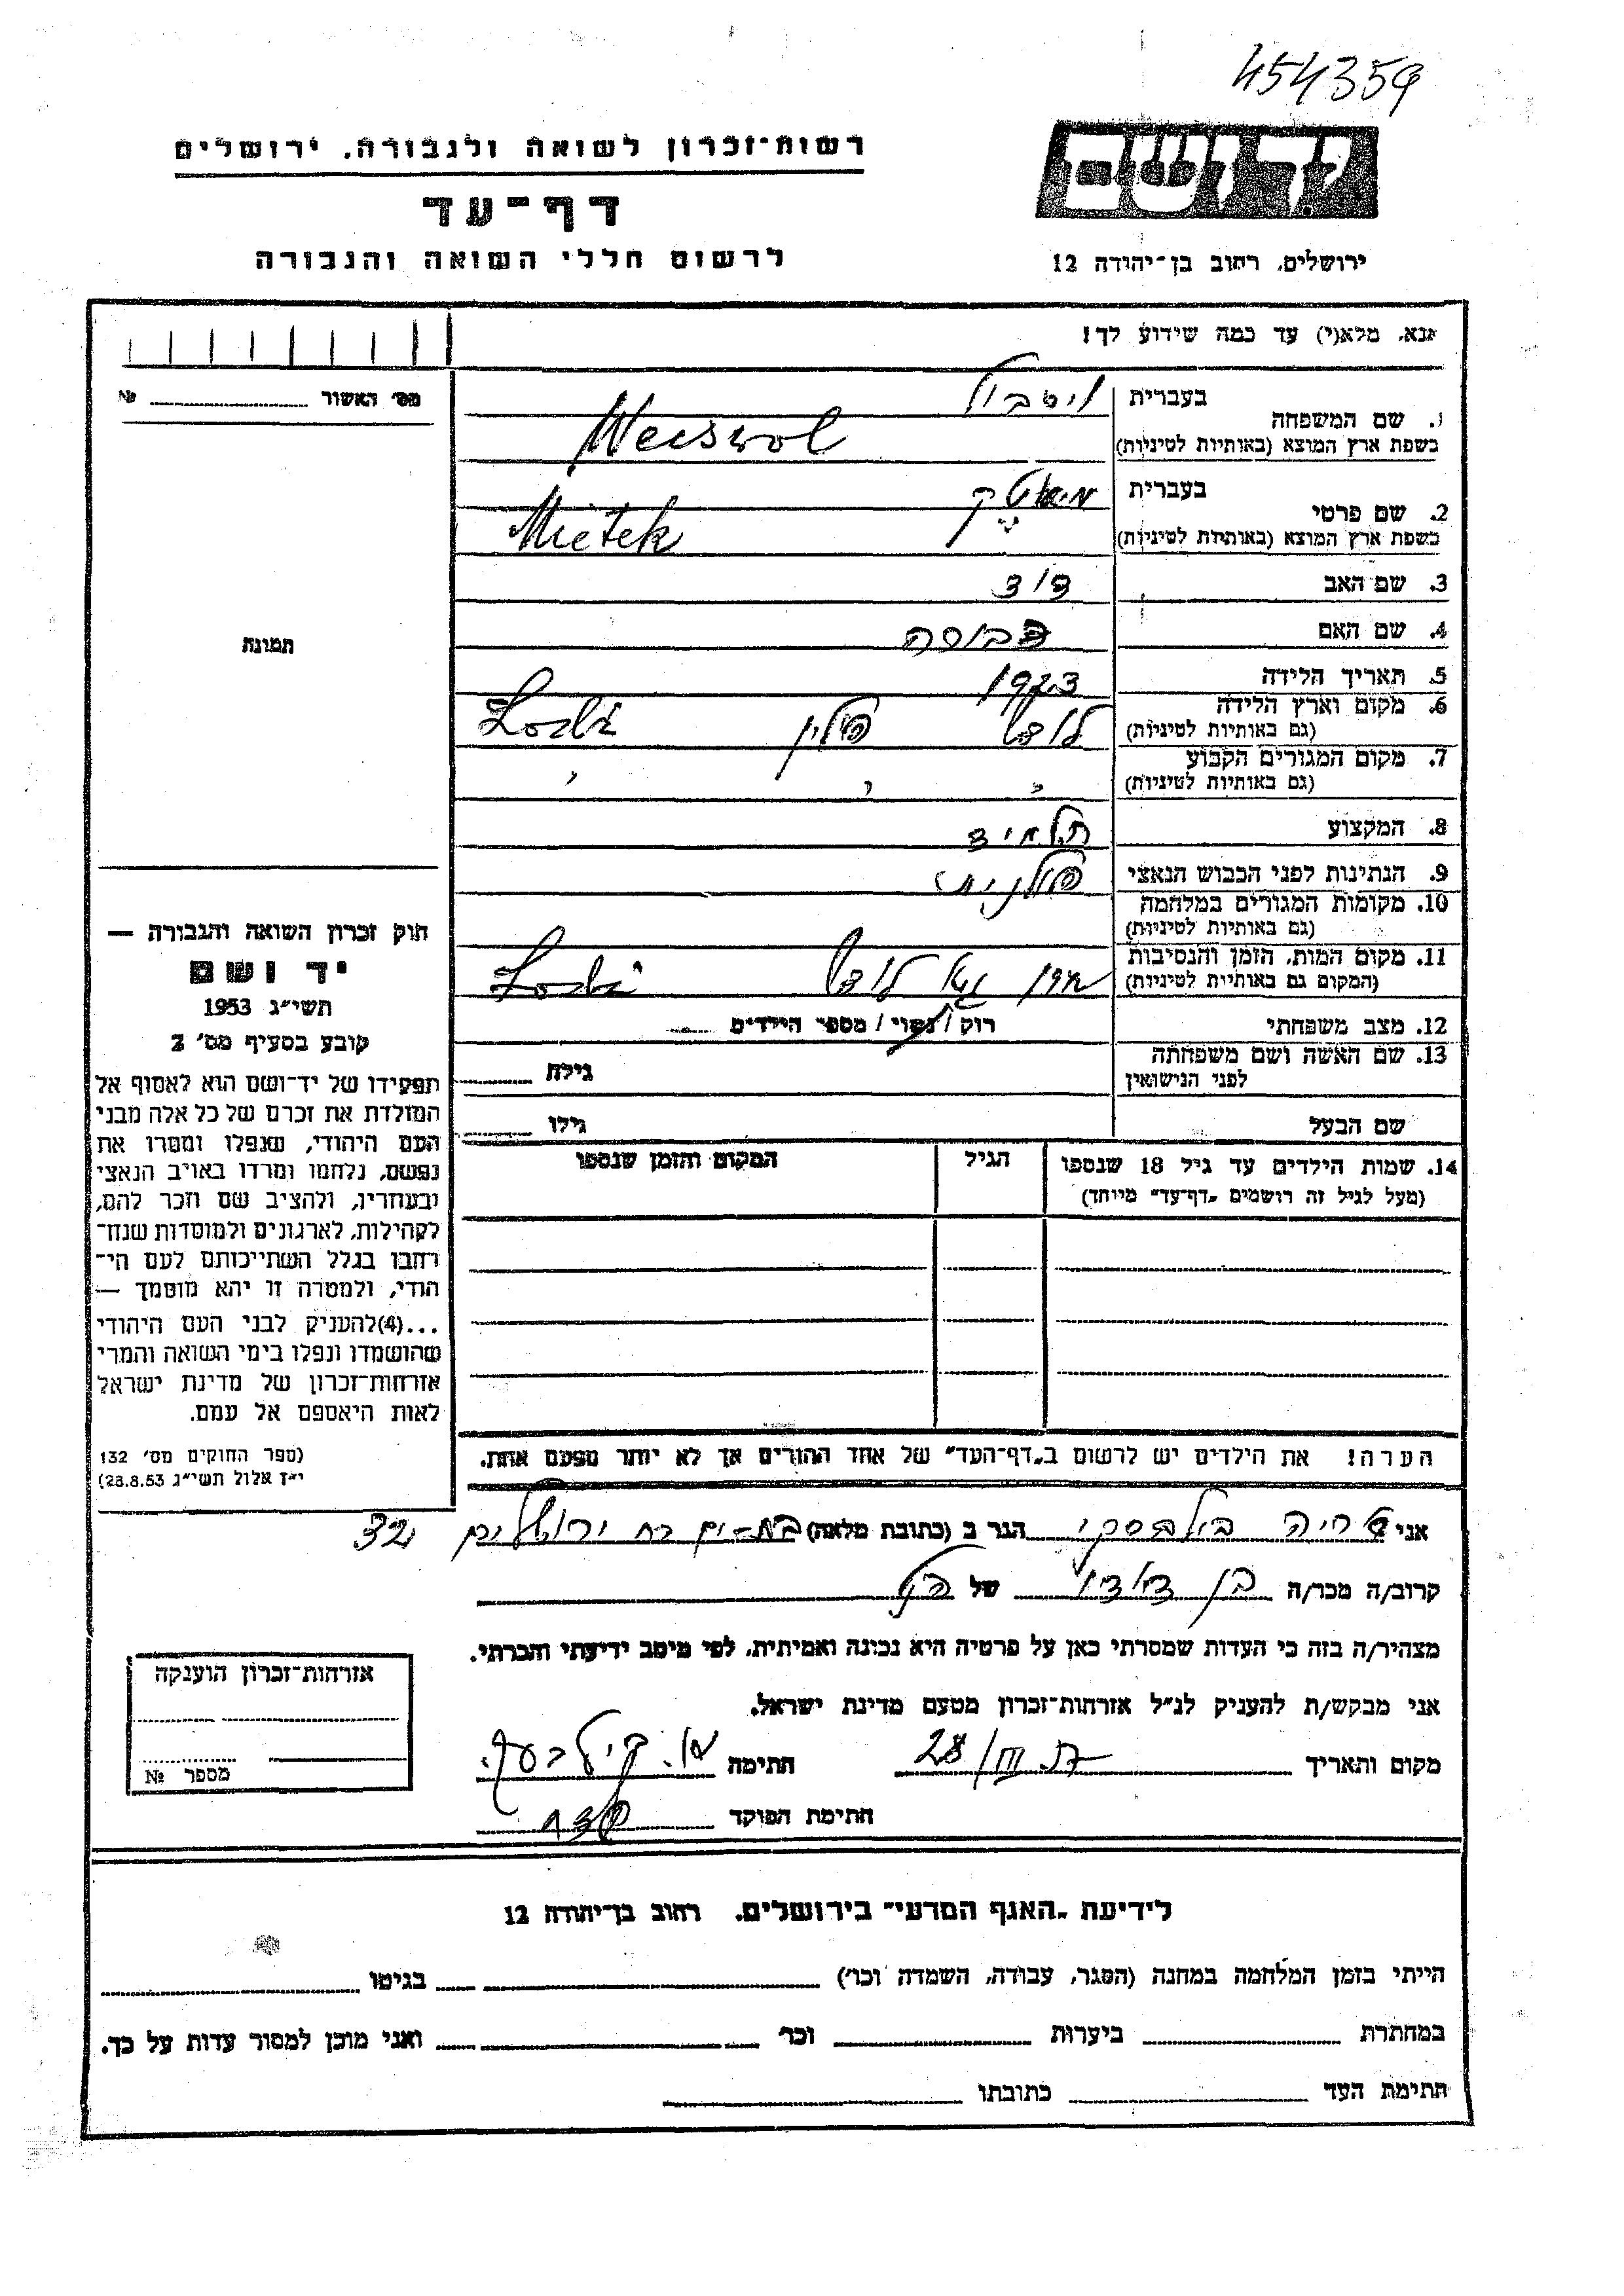 454359
רשות־זכרון לשואה ולגבורה, ירושלים
דף־עד
לרשום חללי השואה והגבורה
יד ושם
ירושלים, רחוב בן־יהודה 12
אנא, מלא(י) עד כמה שידוע לך!
מס' האשור № 
בעברית
1. שם המשפחה
בשפת ארץ המוצא (באותיות לטיניות)
בעברית
2. שם פרטי Mietek
בשפת ארץ המוצא (באותיות לטיניות)
3. שם האב דוד
4. שם האם
5. תאריך הלידה 1923
6. מקום וארץ הלידה לודז' פולין Lodź
(גם באותיות לטיניות)
7. מקום המגורים הקבוע " " "
(גם באותיות לטיניות)
8. המקצוע תלמיד
9. הנתינות לפני הכבוש הנאצי פולנית
10. מקומות המגורים במלחמה
(גם באותיות לטיניות)
11. מקום המות, הזמן והנסיבות לודז' Lodź
(המקום גם באותיות לטיניות)
12. מצב משפחתי רוק / נשוי / מספר הילדים
13. שם האשה ושם משפחתה גילה
לפני הנישואין
שם הבעל גילו
14. שמות הילדים עד גיל 18 שנספו הגיל המקום והזמן שנספו
(מעל לגיל זה רושמים "דף־עד" מיוחד)
הערה! את הילדים יש לרשום ב"דף־העד" של אחד ההורים אך לא יותר מפעם אחת.
תמונה
חוק זכרון השואה והגבורה —
יד ושם
תשי"ג 1953
קובע בסעיף מס' 2
תפקידו של יד־ושם הוא לאסוף אל
המולדת את זכרם של כל אלה מבני
העם היהודי, שנפלו ומסרו את
נפשם, נלחמו ומרדו באויב הנאצי
ובעוזריו, ולהציב שם וזכר להם,
לקהילות, לארגונים ולמוסדות שנח־
רבו בגלל השתייכותם לעם הי־
הודי, ולמטרה זו יהא מוסמך —
...(4) להעניק לבני העם היהודי
שהושמדו ונפלו בימי השואה והמרי
אזרחות־זכרון של מדינת ישראל
לאות היאספם אל עמם.
(ספר החוקים מס' 132
י"ז אלול תשי"ג 28.8.53)
אני הגר ב (כתובת מלאה) בת-ים רח ירושלים 32
קרוב/ה מכר/ה בן דודו של
מצהיר/ה בזה כי העדות שמסרתי כאן על פרטיה היא נכונה ואמיתית, לפי מיטב ידיעתי והכרתי.
אני מבקש/ת להעניק לנ"ל אזרחות־זכרון מטעם מדינת ישראל.
מקום ותאריך 28/III חתימה
חתימת הפוקד
אזרחות־זכרון הוענקה
מספר №
לידיעת "האגף המדעי" בירושלים, רחוב בן־יהודה 12
הייתי בזמן המלחמה במחנה (הסגר, עבודה, השמדה וכו') בגיטו
במחתרת ביערות וכו' ואני מוכן למסור עדות על כך.
חתימת העד כתובתו